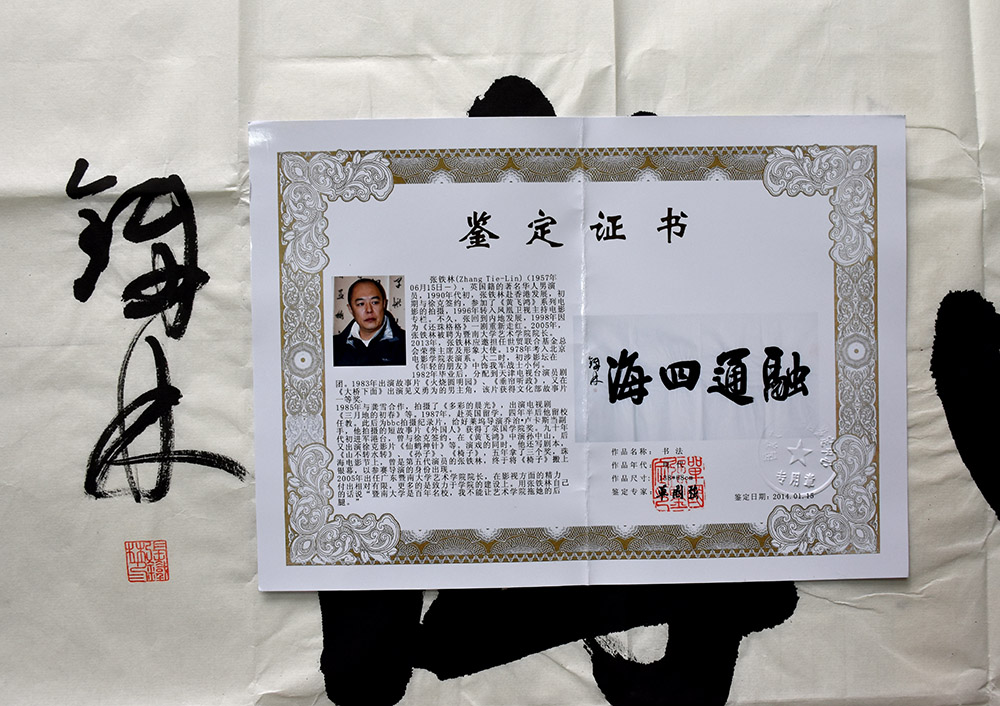 铁林
鉴定证书
张铁林(Zhang Tie-Lin)(1957年
06月15日—），英国籍的著名华人男演
员，1990年代初，张铁林赴香港发展，初
期与徐克签约，参加了《黄飞鸿》系列电
影的拍摄，1996年转入凤凰卫视主持电影
专栏。不久，张回到内地发展，1998年因
为《还珠格格》一剧重新走红。2005年，
张铁林被聘为暨南大学艺术学院院长。
2013年，张铁林应邀担任世贸联合基金总
会荣誉主席及形象大使。1978年考入北京
电影学院表演系。大二时，初涉影坛在
《年轻的朋友》中饰我军战士小何。
1982年毕业后，分配到天津电视台演员剧
团。1983年出演故事片《火烧圆明园》、《垂帘听政》，又在
《大桥下面》出演见义勇为的男主角，该片获得文化部故事片
一等奖。
1985年与龚雪合作，拍摄了《多彩的晨光》，出演电视剧
《三月地的初春》等。1987年，赴英国留学，四年半后他留校
任教。此后为bbc拍摄纪录片，给好莱坞导演乔治·卢卡斯当副
手，他拍摄的短故事片《外国人》获得了英国学院奖。九十年
代初进军港台，曾与徐克签约，在《黄飞鸿》中演孙中山，后
又出演徐克影片《仙鹤神针》等。演戏的同时，他还写剧本，
《山不转水转》、《孙子》、《椅子》，五年拿了三个奖，珠
海电影节上，曾是第五代演员的张铁林，终于将《椅子》搬上
银幕，以参赛导演的身份出现。
2005年出任广东暨南大学艺术学院院长，在影视方面的精力
付出相对有限，更多的是致力于学院的建设，用张铁林自己
的话说“暨南大学是百年名校，我不能让艺术学院拖她的后
腿。
海四通融
铁林
作品名称：书法
作品年代：
作品尺寸：
鉴定专家：
专用章
鉴定日期：2014.01.15